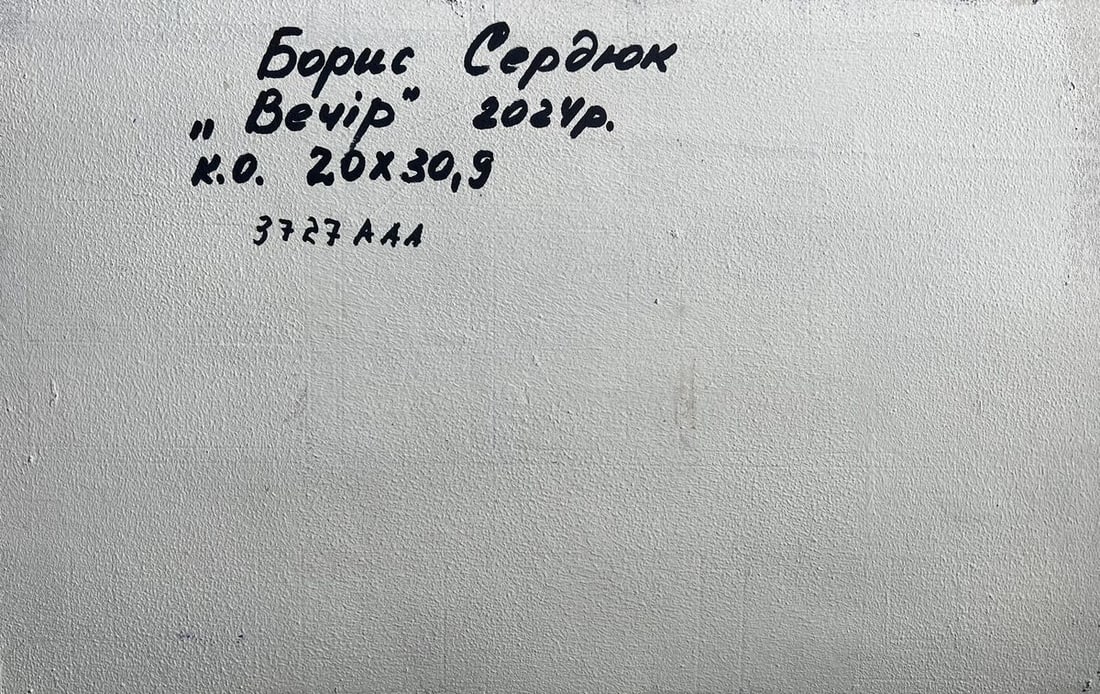 Борис Сердюк
„Вечір" 2024р.
к.о. 20х30,9
3727ААА